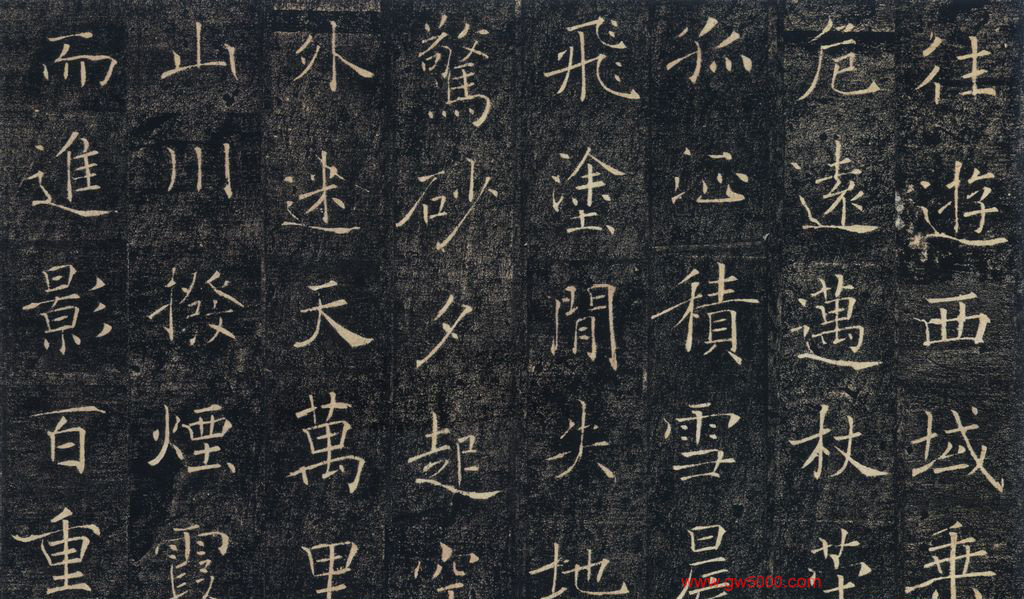 往遊西域乘
危遠邁杖策
孤征積雪晨
飛塗閒失地
驚砂夕起空
外迷天萬里
山川撥煙霞
而進影百重
www.gw5000.com